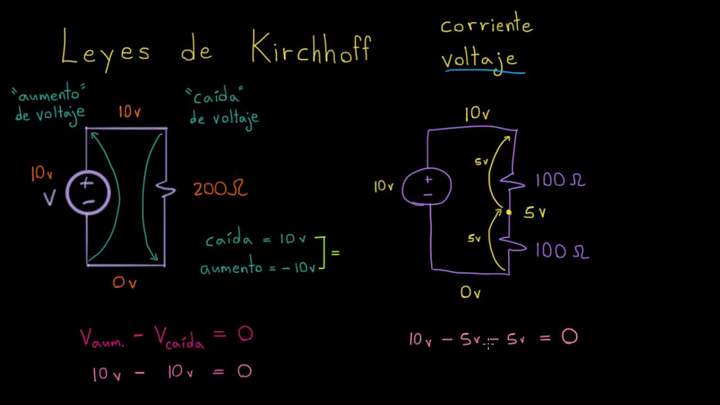 Leyes de Kirchhoff
corriente
voltaje
"aumento"
de voltaje
10v
"caída"
de voltaje
10v
V
+
-
200Ω
0v
caída = 10v
aumento = -10v
=
Vaum. - Vcaída = 0
10v - 10v = 0
10v
10v
+
-
5v
100Ω
5v
5v
100Ω
0v
10v - 5v - 5v = 0